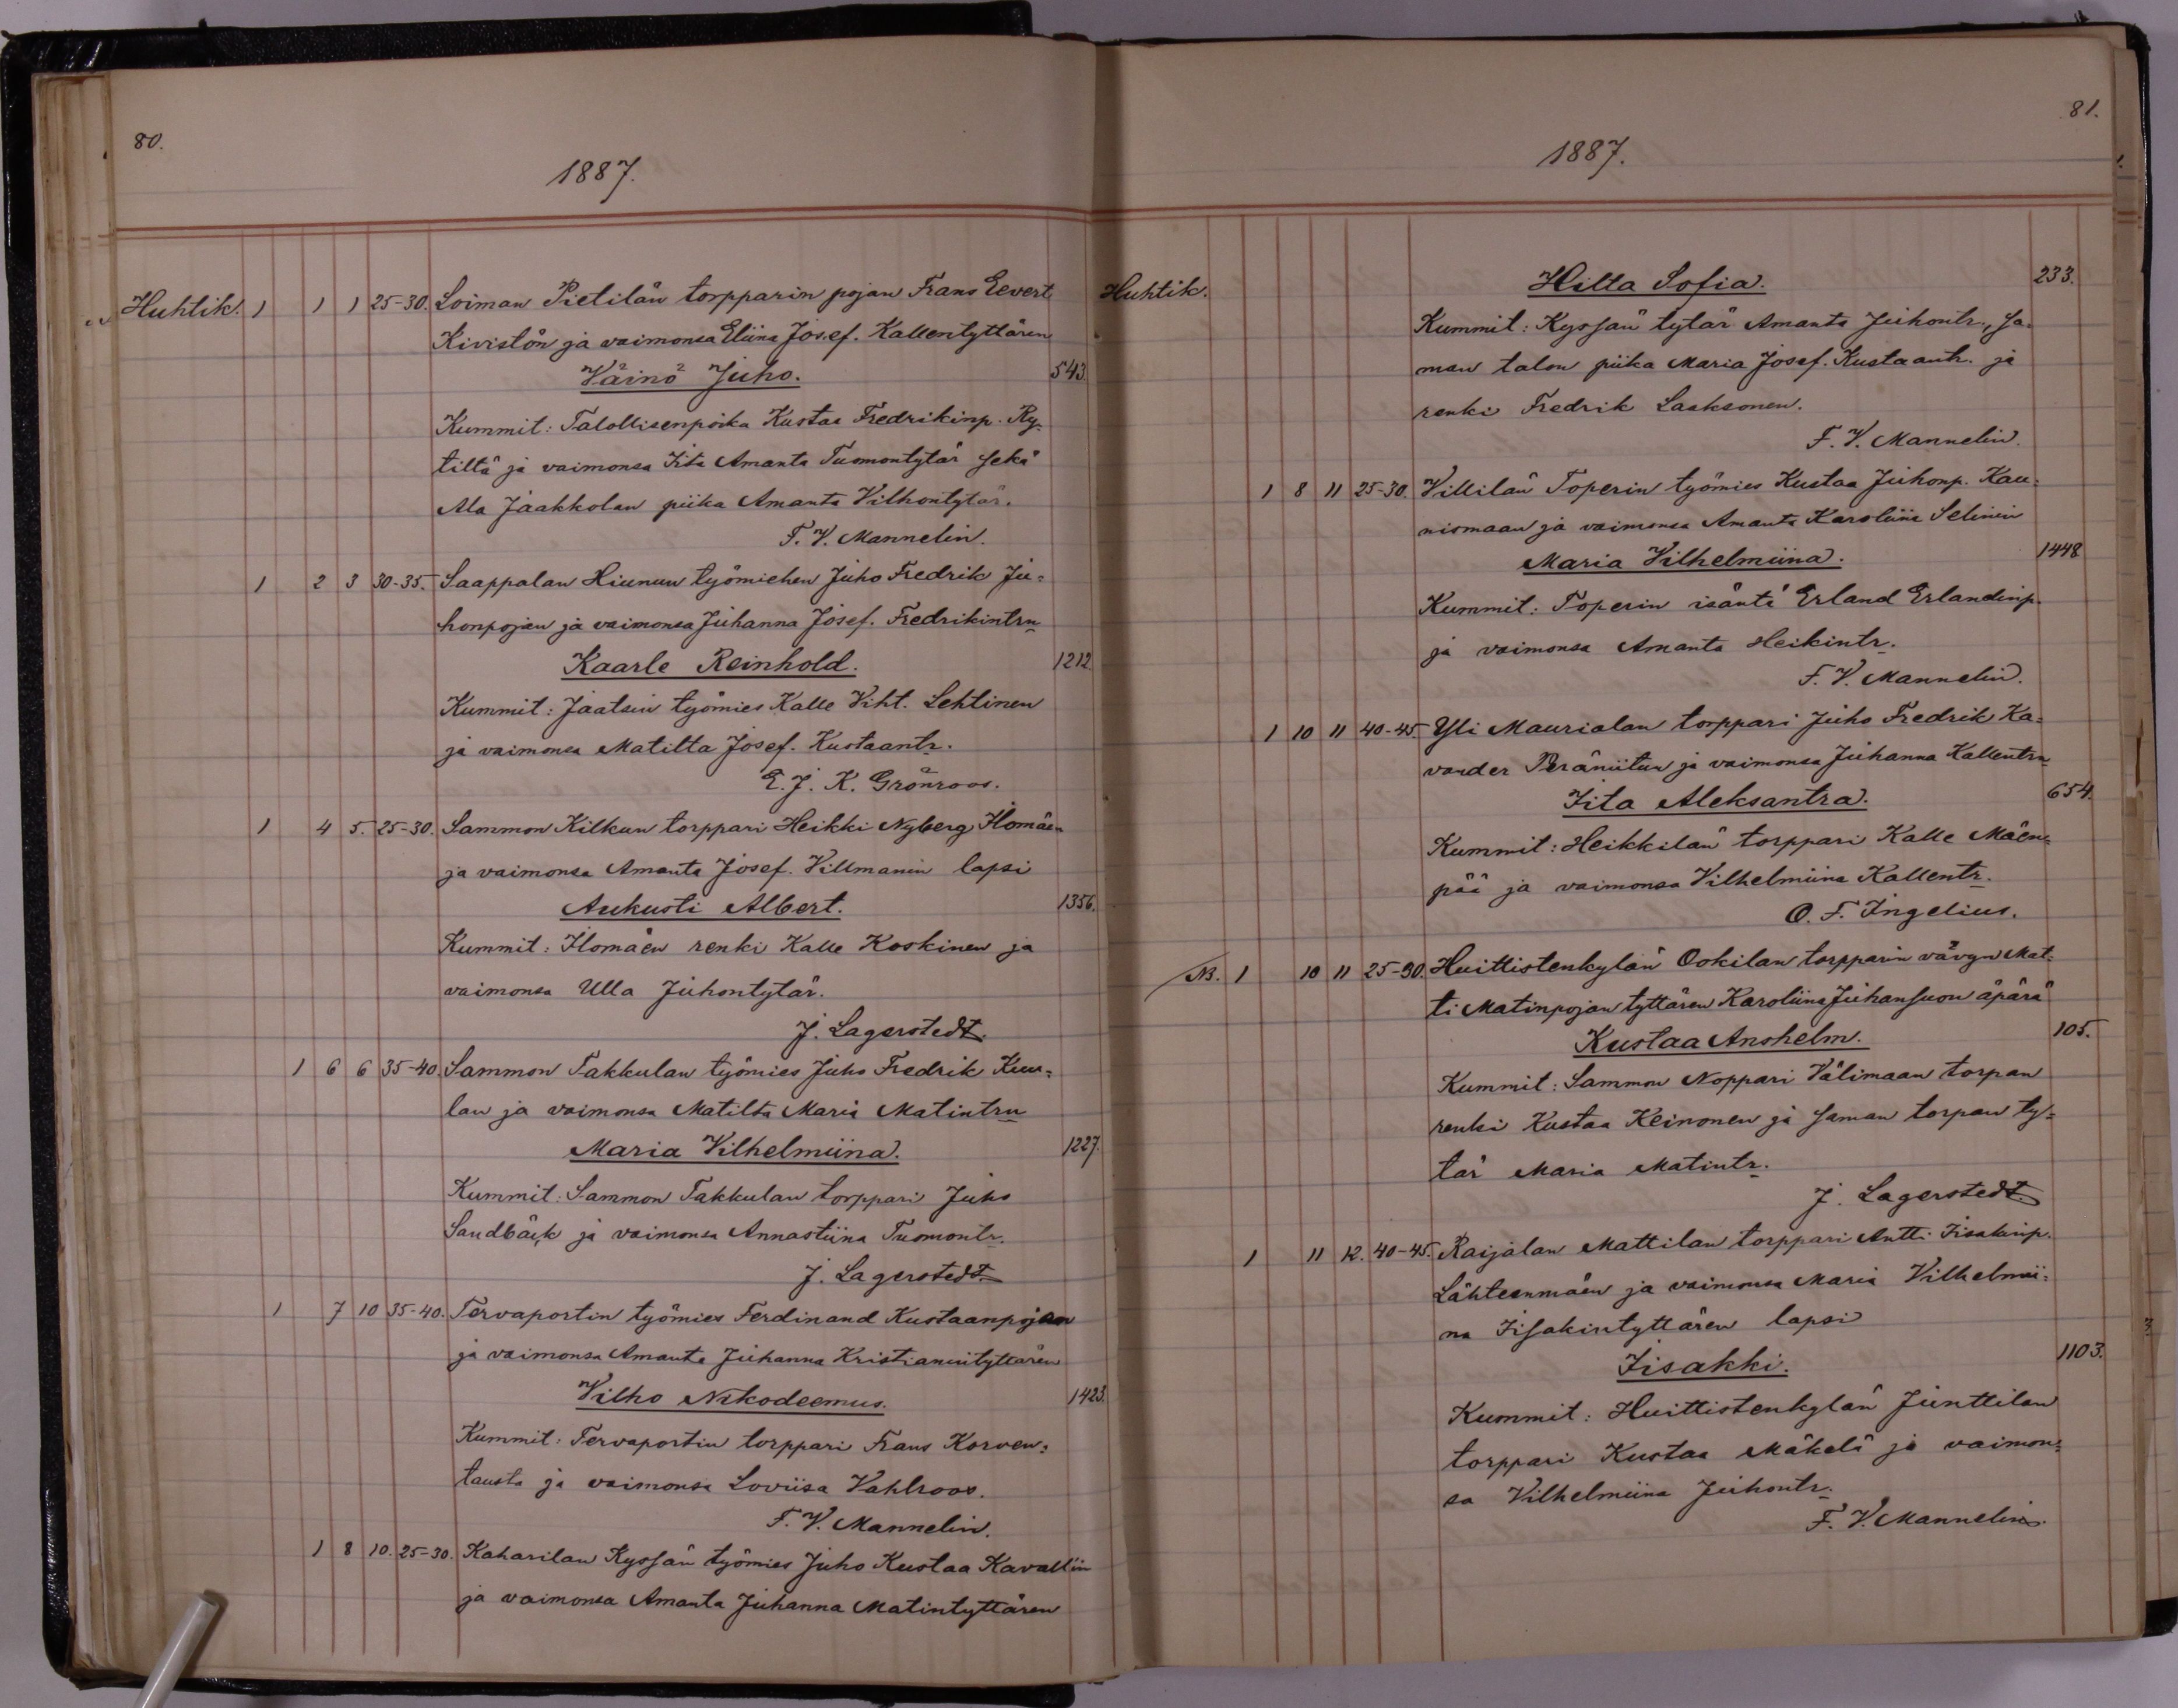 80.
1887.
Huhtik. 1 1 1 25-30. Loiman Pietilän torpparin pojan Frans Eevert
Kivistön ja vaimonsa Eliina Josef. Kallentyttären
Väinö Juho. 543.
Kummit: Talollisenpoika Kustaa Fredrikinp. Ry-
tiltä ja vaimonsa Iita Amanta Tuomontytär sekä
Ala Jaakkolan piika Amanta Vilhontytär.
F. V. Mannelin.
1 2 3 30-35. Saappalan Hiunun työmiehen Juho Fredrik Ju-
honpojan ja vaimonsa Juhanna Josef. Fredrikintrn
Kaarle Reinhold. 1212.
Kummit: Jaatsin työmies Kalle Viht. Lehtinen
ja vaimonsa Matilta Josef. Kustaantr.
E. J. K. Grönroos.
1 4 5. 25-30. Sammon Kilkun torppari Heikki Nyberg Ilomäen
ja vaimonsa Amanta Josef. Villmanin lapsi
Aukusti Albert. 1356.
Kummit: Ilomäen renki Kalle Koskinen ja
vaimonsa Ulla Juhontytär.
J. Lagerstedt.
1 6 6 35-40. Sammon Takkulan työmies Juho Fredrik Kuu-
lan ja vaimonsa Matilta Maria Matintrn
Maria Vilhelmiina. 1227.
Kummit: Sammon Takkulan torppari Juho
Sandbäck ja vaimonsa Annastiina Tuomontr.
J. Lagerstedt
1 7 10 35-40. Tervaportin työmies Ferdinand Kustaanpojan
ja vaimonsa Amanta Juhanna Kristianintyttären
Vilho Nikodeemus. 1423.
Kummit: Tervaportin torppari Frans Korven-
tausta ja vaimonsa Loviisa Vahlroos.
F. V. Mannelin.
1 8 10. 25-30. Kaharilan Kyssän työmies Juho Kustaa Kavall'in
ja vaimonsa Amanta Juhanna Matintyttären
81.
1887.
Huhtik. Hilta Sofia. 233.
Kummit: Kyssän tytär Amanta Juhontr., sa-
man talon piika Maria Josef. Kustaantr. ja
renki Fredrik Laaksonen.
F. V. Mannelin.
1 8 11 25-30. Villilän Toperin työmies Kustaa Juhonp. Kau-
niomaan ja vaimonsa Amanta Karoliina Selinin
Maria Vilhelmiina. 1448
Kummit: Toperin isäntä Erland Erlandinp.
ja vaimonsa Amanta Heikintr.
F. V. Mannelin.
1 10 11 40-45 Yli Maurialan torppari Juho Fredrik Ka-
vander Peräniitun ja vaimonsa Juhanna Kallentrn
Iita Aleksantra. 654.
Kummit: Heikkilän torppari Kalle Mäen-
pää ja vaimonsa Vilhelmiina Kallentr.
O. F. Ingelius.
NB. 1 10 11 25-30. Huittistenkylän Ookilan torpparin vävyn Mat-
ti Matinpojan tyttären Karoliina Juhansuon äpärä
Kustaa Anshelm. 105.
Kummit: Sammon Noppari Välimaan torpan
renki Kustaa Keinonen ja saman torpan ty-
tär Maria Matintr.
J. Lagerstedt
1 11 12. 40-45. Raijalan Mattilan torppari Antti Iisakinp.
Lähteenmäen ja vaimonsa Maria Vilhelmii-
na Iisakintyttären lapsi
Iisakki. 1103.
Kummit: Huittistenkylän Junttilan
torppari Kustaa Mäkelä ja vaimon-
sa Vilhelmiina Juhontr.
F. V. Mannelin.